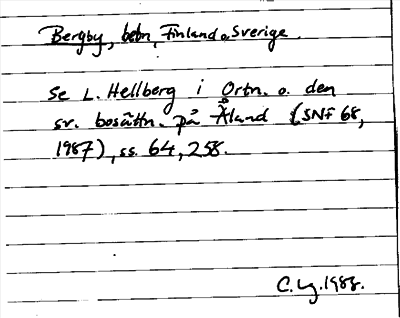 Bergby, bebn, Finland o. Sverige.
Se L. Hellberg i Ortn. o. den
sv. bosättn. på Åland (SNF 68,
1987), ss. 64, 258.
C. Lg. 1988.